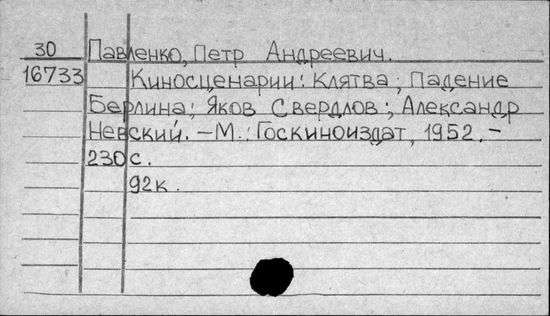 30 Павленко, Петр Андреевич.
16733 Киносценарии: Клятва; Падение
Берлина; Яков Свердлов; Александр
Невский. – М.: Госкиноиздат, 1952. –
230 с.
92к.